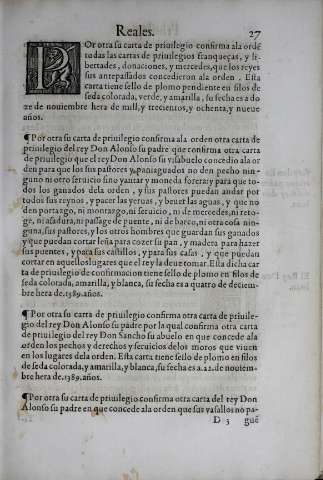 Reales. 27
POr otra su carta de priuilegio confirma ala ordē
todas las cartas de priuilegios franqueças, y li-
bertades, donaciones, y mercedes, que los reyes
sus antepassados concedieron ala orden. Esta
carta tiene sello de plomo pendiente en filos de
seda colorada, verde, y amarilla, su fecha es a do
ze de nouiembre hera de mill, y trecientos, y ochenta, y nueue
años.
¶Por otra su carta de priuilegio confirma ala orden otra carta de
priuilegio del rey Don Alonso su padre que confirma otra carta
de priuilegio que el rey Don Alonso su visabuelo concedio ala or
den para que los sus pastores y paniaguados no den pecho nin-
guno ni otro seruicio sino yantar y moneda forera; y para que to-
dos los ganados dela orden, y sus pastores puedan andar por
todos sus reynos, y pacer las yeruas, y beuer las aguas, y que no
den portazgo, ni montazgo, ni seruicio, ni de mercedes, ni reto-
ge, ni asadura, ni passage de puente, ni de barco, ni otra cosa nin-
guna, sus pastores, y los otros hombres que guardan sus ganados
y que puedan cortar leña para cozer su pan, y madera para hazer
sus puentes, y para sus castillos, y para sus casas, y que puedan
cortar en aquellos lugares que el rey la deue tomar. Esta dicha car
ta de priuilegio de confirmacion tiene sello de plomo en filos de
seda colorada, amarilla, y blanca, su fecha es a quatro de deciem-
bre hera de .1389. años.
¶Por otra su carta de priuilegio confirma otra carta de priuile-
gio del rey Don Alonso su padre por la qual confirma otra carta
de priuilegio del rey Don Sancho su abuelo en que concede ala
orden los pechos y derechos y seruicios delos moros que viuen
en los lugares dela orden. Esta carta tiene sello de plomo en filos
de seda colorada, y amarilla, y blanca, su fecha es .a.22. de nouiem-
bre hera de .1389. años.
¶Por otra su carta de priuilegio confirma otra carta del rey Don
Alonso su padre en que concede ala orden que sus vasallos no pa-
D 3 guē